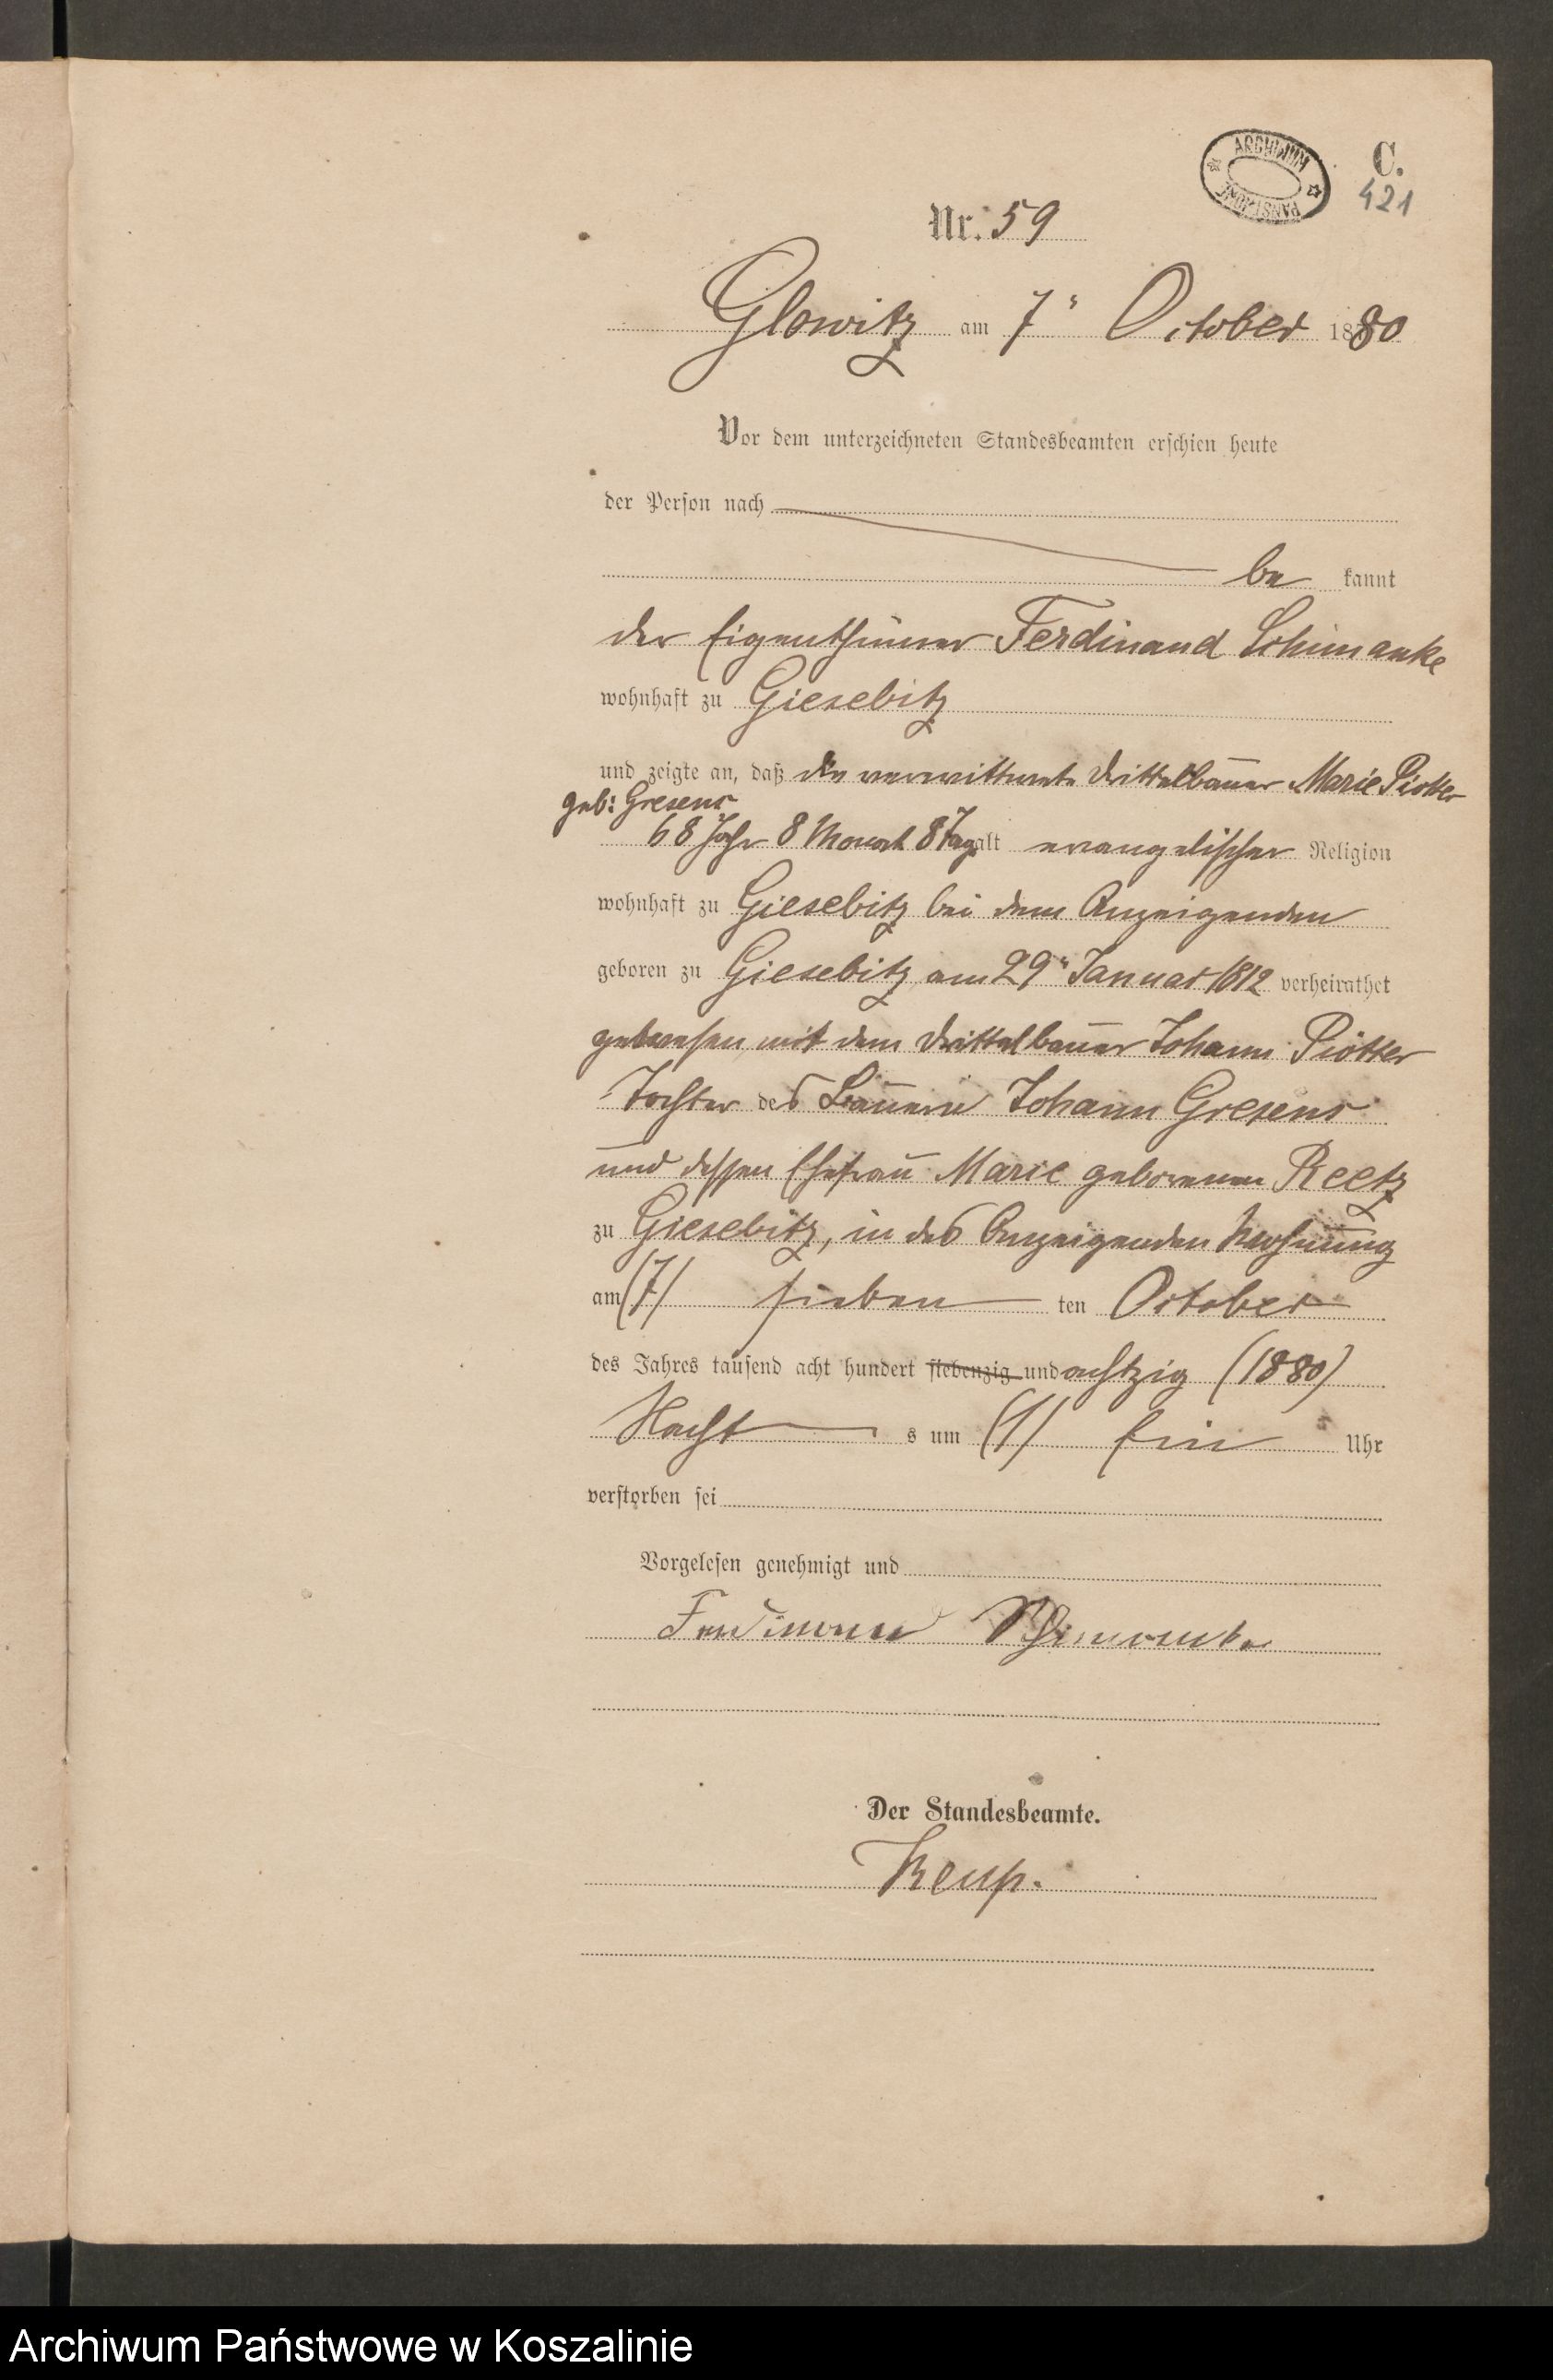 ARCHIWUM PAŃSTWOWE
C.
421
Nr. 59
Glowitz am 7" October 1880
Vor dem unterzeichneten Standesbeamten erschien heute
der Person nach
be kannt
der Eigenthümer Ferdinand Schimanke
wohnhaft zu Giesebitz
und zeigte an, daß die verwittwete Drittelbauer Marie Piotter
geb: Gresens
68 Jahr 8 Monat 8 Tage alt evangelischer Religion
wohnhaft zu Giesebitz bei dem Anzeigenden
geboren zu Giesebitz am 29" Januar 1812 verheirathet
gewesen mit dem Drittelbauer Johann Piötter
Tochter des Bauern Johann Gresens
und dessen Ehefrau Marie geborenen Reetz
zu Giesebitz, in des Anzeigenden Wohnung
am (7) sieben ten October
des Jahres tausend acht hundert siebenzig und achtzig (1880)
Nacht s um (1) Ein Uhr
verstorben sei
Vorgelesen genehmigt und
Ferdinand Schimanke
Der Standesbeamte.
Keup.
Archiwum Państwowe w Koszalinie